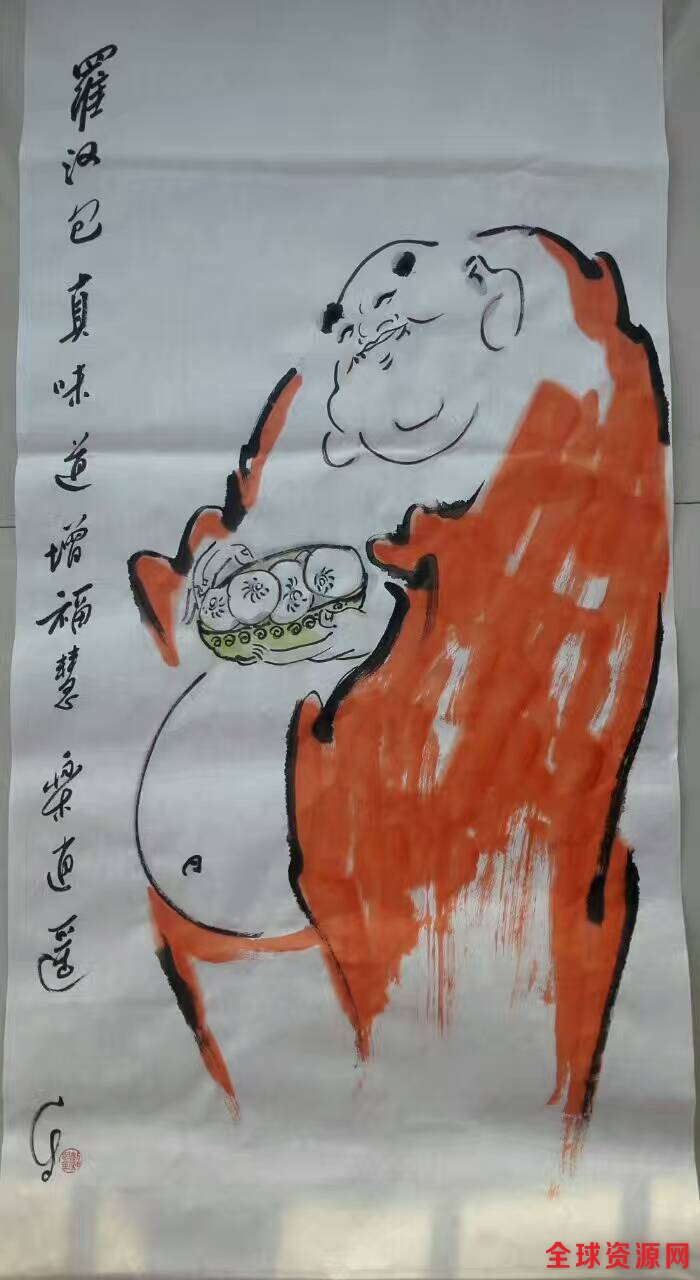 羅汉包 真味道 增福慧 樂逍遥
全球资源网